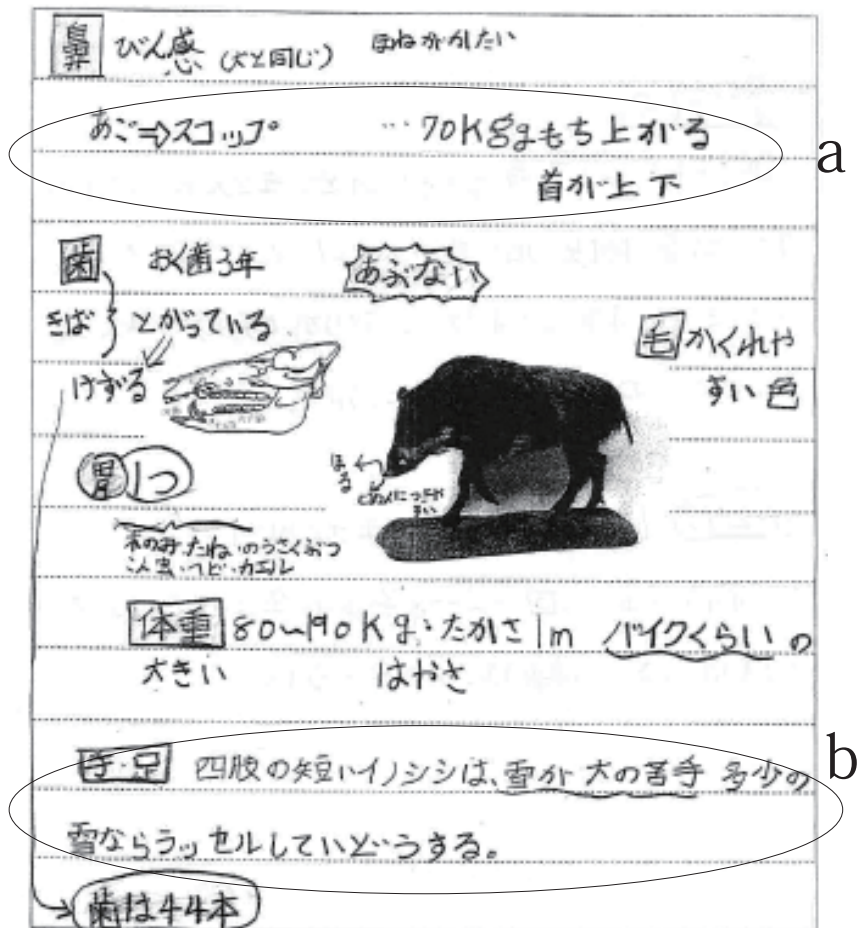 鼻 びん感 (犬と同じ) ほねがかたい
あご⇒スコップ …70Kggもち上がる
首が上下
a
歯 おく歯3年 あぶない
きば とがっている
けずる
毛 かくれや
すい色
胃 1つ
ほる
とめ人につきや
すい
木のみ・たね・のうさくぶつ
こん虫・ヘビ・カエル
体重 80〜190Kg・たかさ1m バイクくらいの
大きい はやさ
手・足 四肢の短いイノシシは、雪が大の苦手 多少の
雪ならラッセルしていどうする。
b
歯は44本